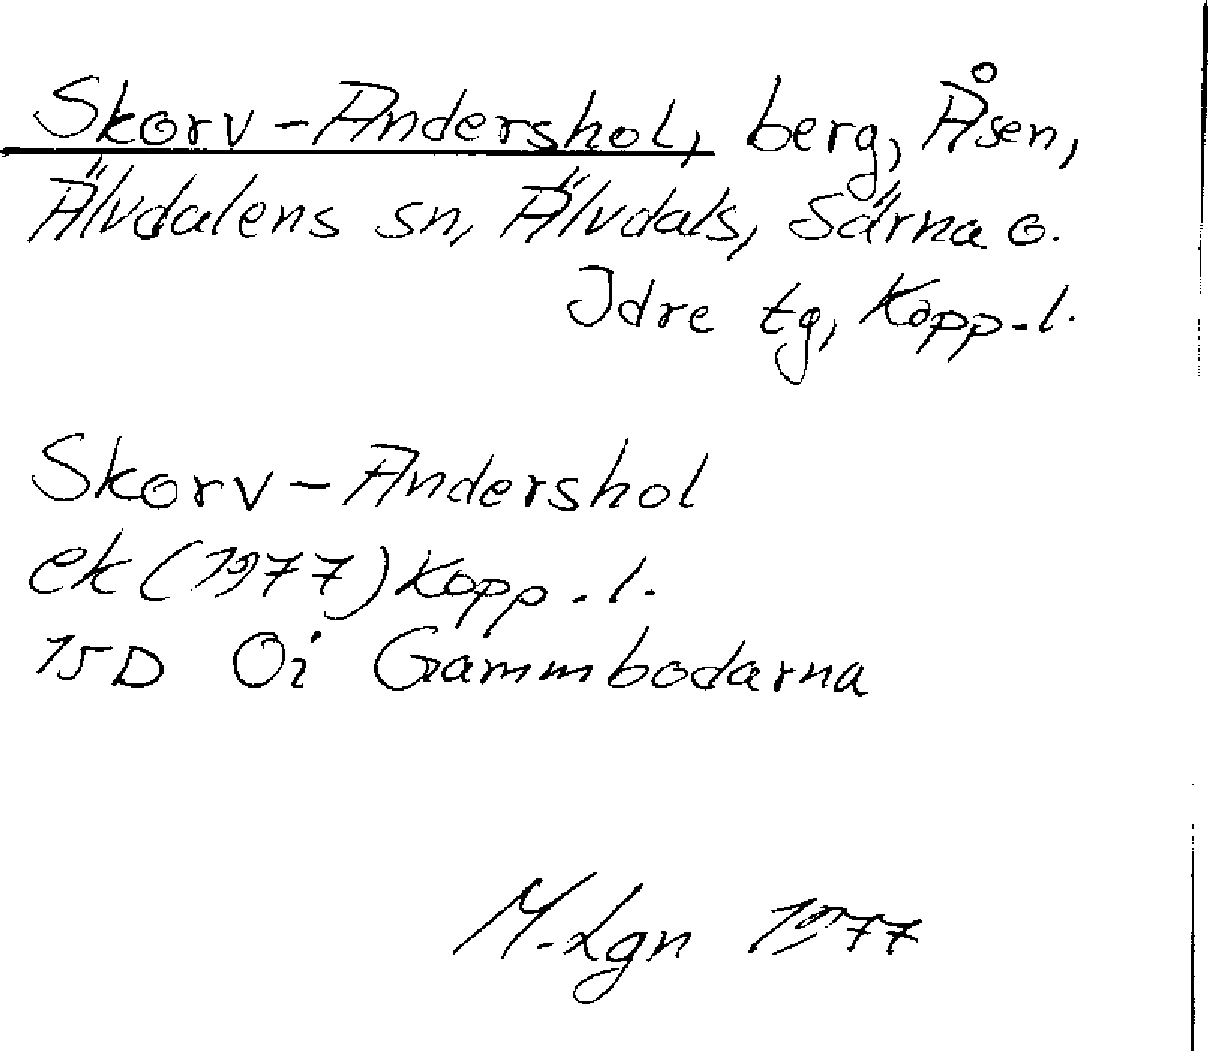 Skorv-Andershol, berg, Åsen,
Älvdalens sn, Älvdals, Särna o.
Idre tg, Kopp.l.
Skorv-Andershol
ek (1977) Kopp.l.
15D Oi Gammbodarna
M-Lgn 1977